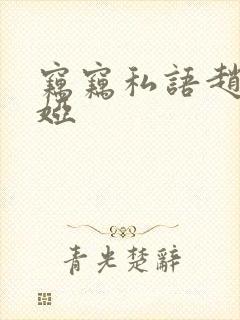 竊竊私語趙
婭
青光楚辭